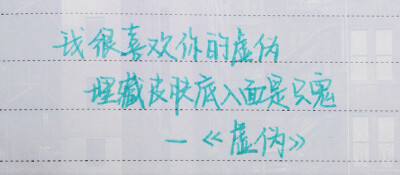 我很喜欢你的虚伪
埋藏皮肤底入面是只鬼
—《虚伪》